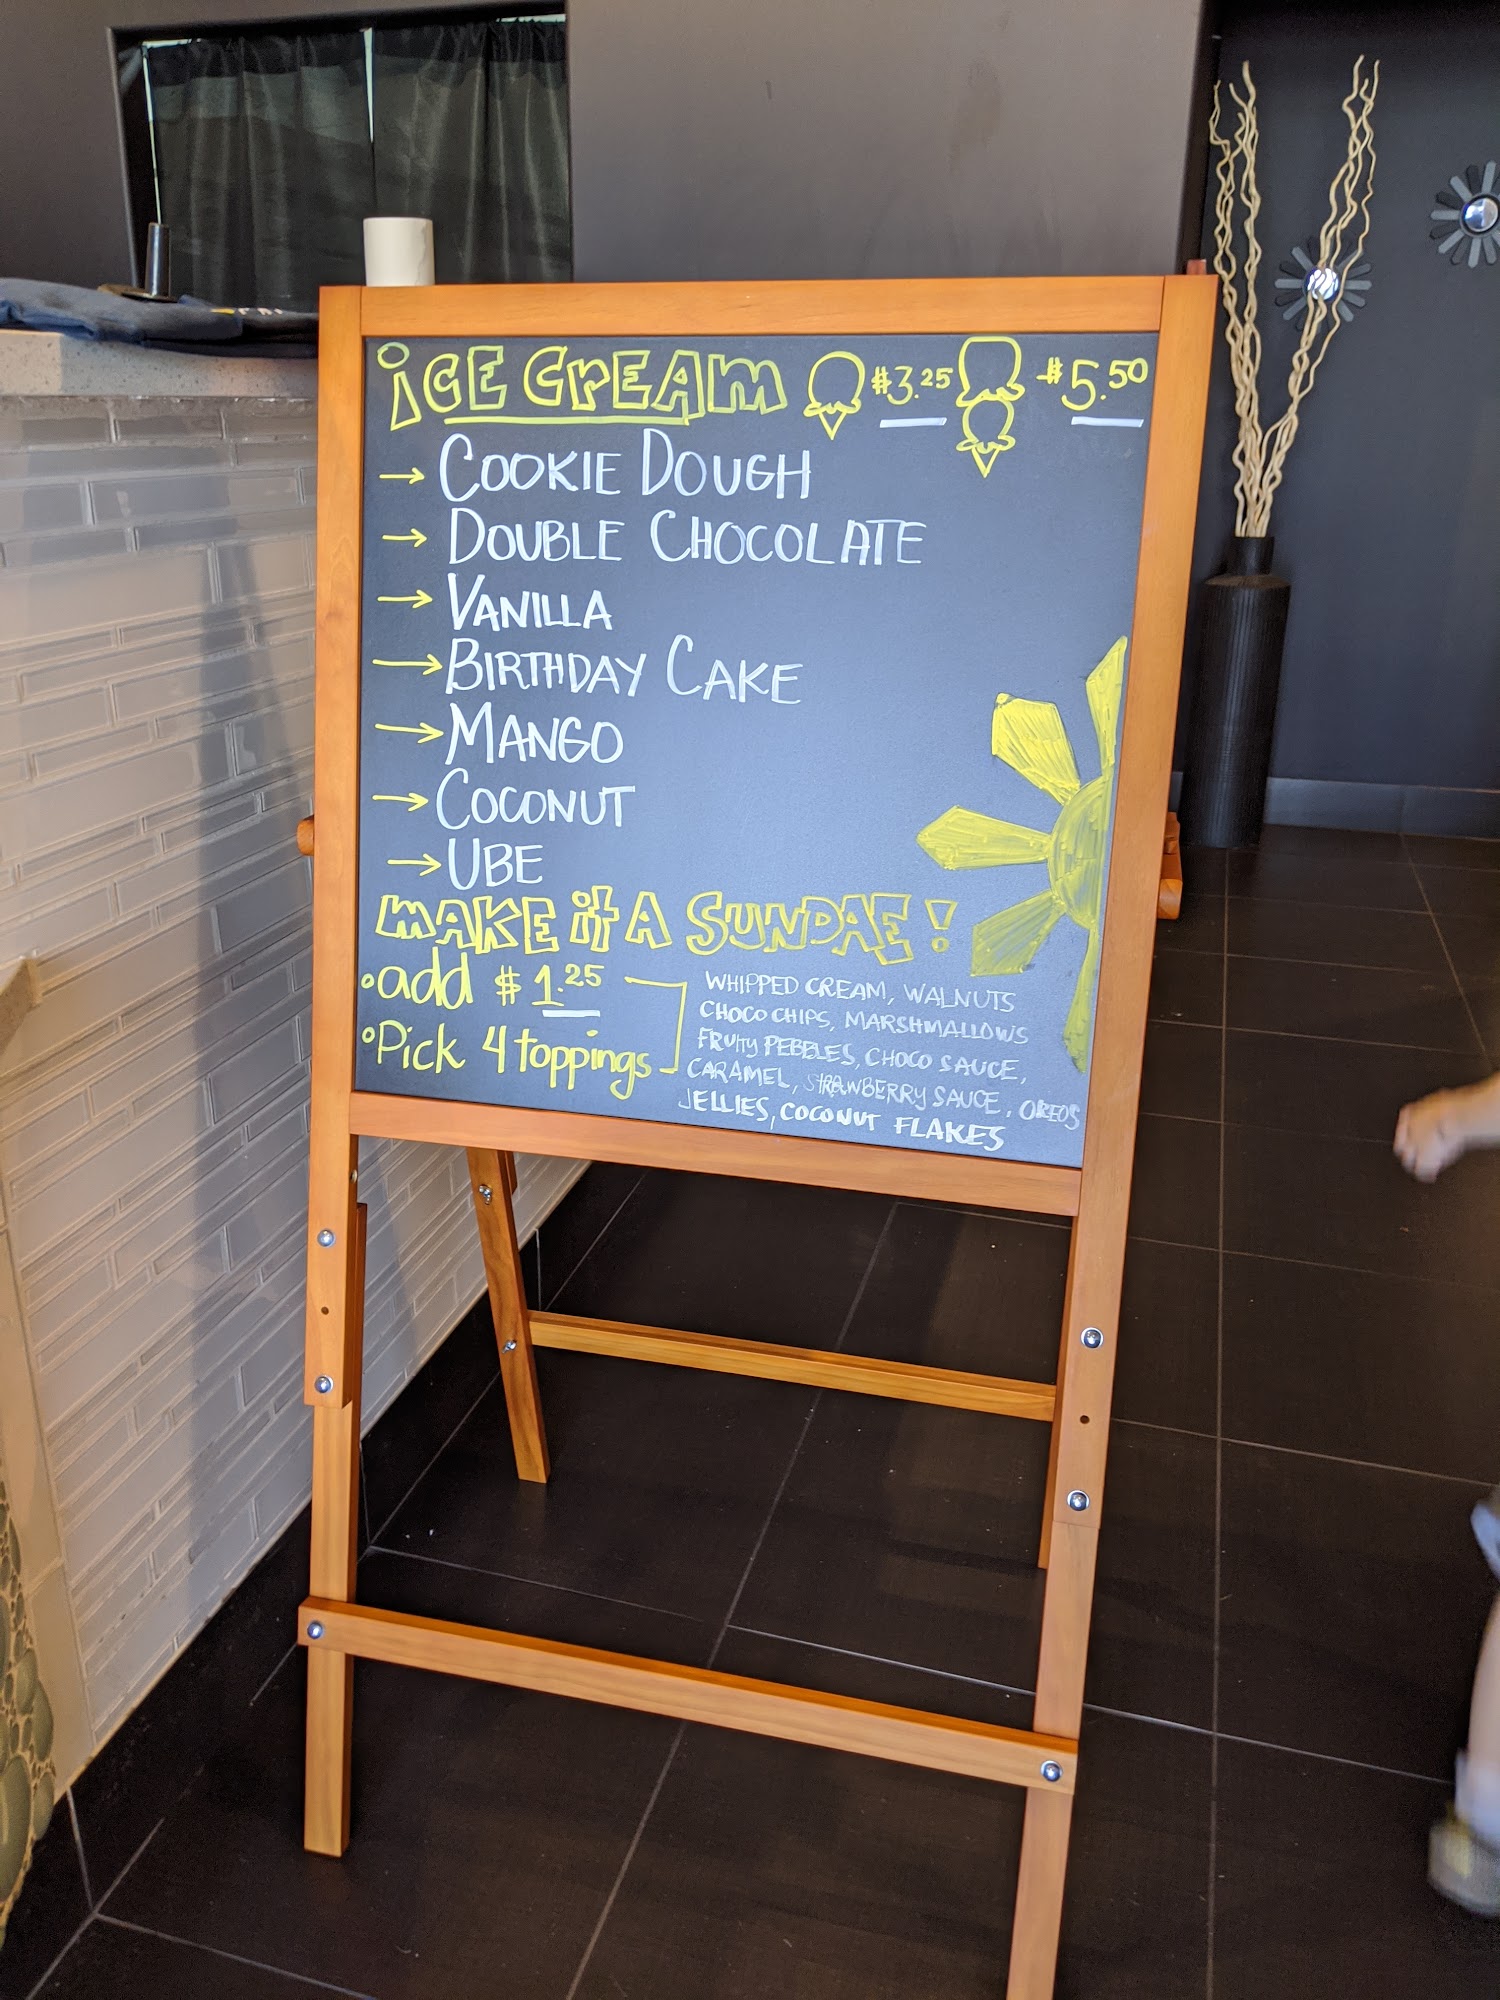 ICE CREAM $3.25 $5.50
→ COOKIE DOUGH
→ DOUBLE CHOCOLATE
→ VANILLA
→ BIRTHDAY CAKE
→ MANGO
→ COCONUT
→ UBE
MAKE it A SUNDAE!
• add $1.25
• Pick 4 toppings
WHIPPED CREAM, WALNUTS
CHOCO CHIPS, MARSHMALLOWS
FRUITY PEBBLES, CHOCO SAUCE,
CARAMEL, STRAWBERRY SAUCE, OREOS
JELLIES, COCONUT FLAKES